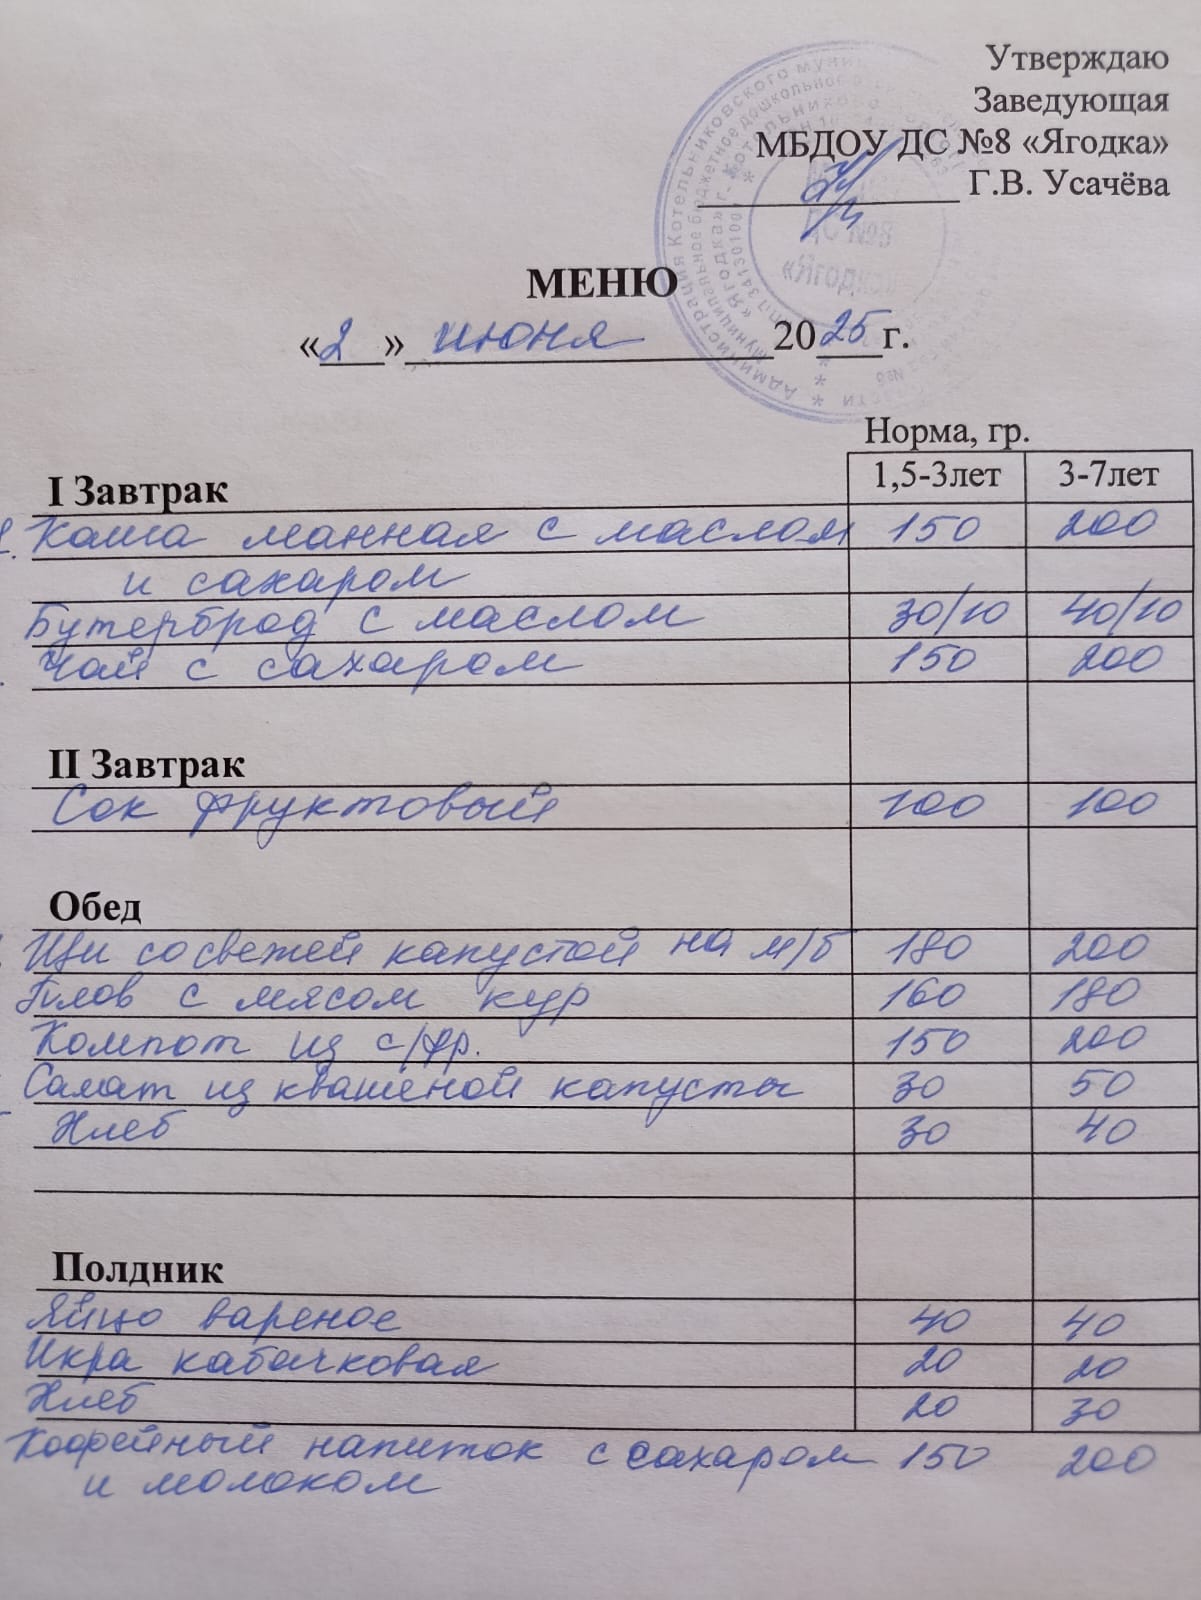 Утверждаю
Заведующая
МБДОУ ДС №8 «Ягодка»
Г.В. Усачёва
ДС №8
«Ягодка»
МЕНЮ
«2» июня 2025 г.
Норма, гр.
I Завтрак 1,5-3лет 3-7лет
Каша манная с маслом 150 200
и сахаром
Бутерброд с маслом 30/10 40/10
Чай с сахаром 150 200
II Завтрак
Сок фруктовый 100 100
Обед
Щи со свежей капустой на м/б 180 200
Плов с мясом кур 160 180
Компот из с/фр. 150 200
Салат из квашеной капусты 30 50
Хлеб 30 40
Полдник
Яйцо вареное 40 40
Икра кабачковая 20 20
Хлеб 20 30
Кофейный напиток с сахаром 150 200
и молоком